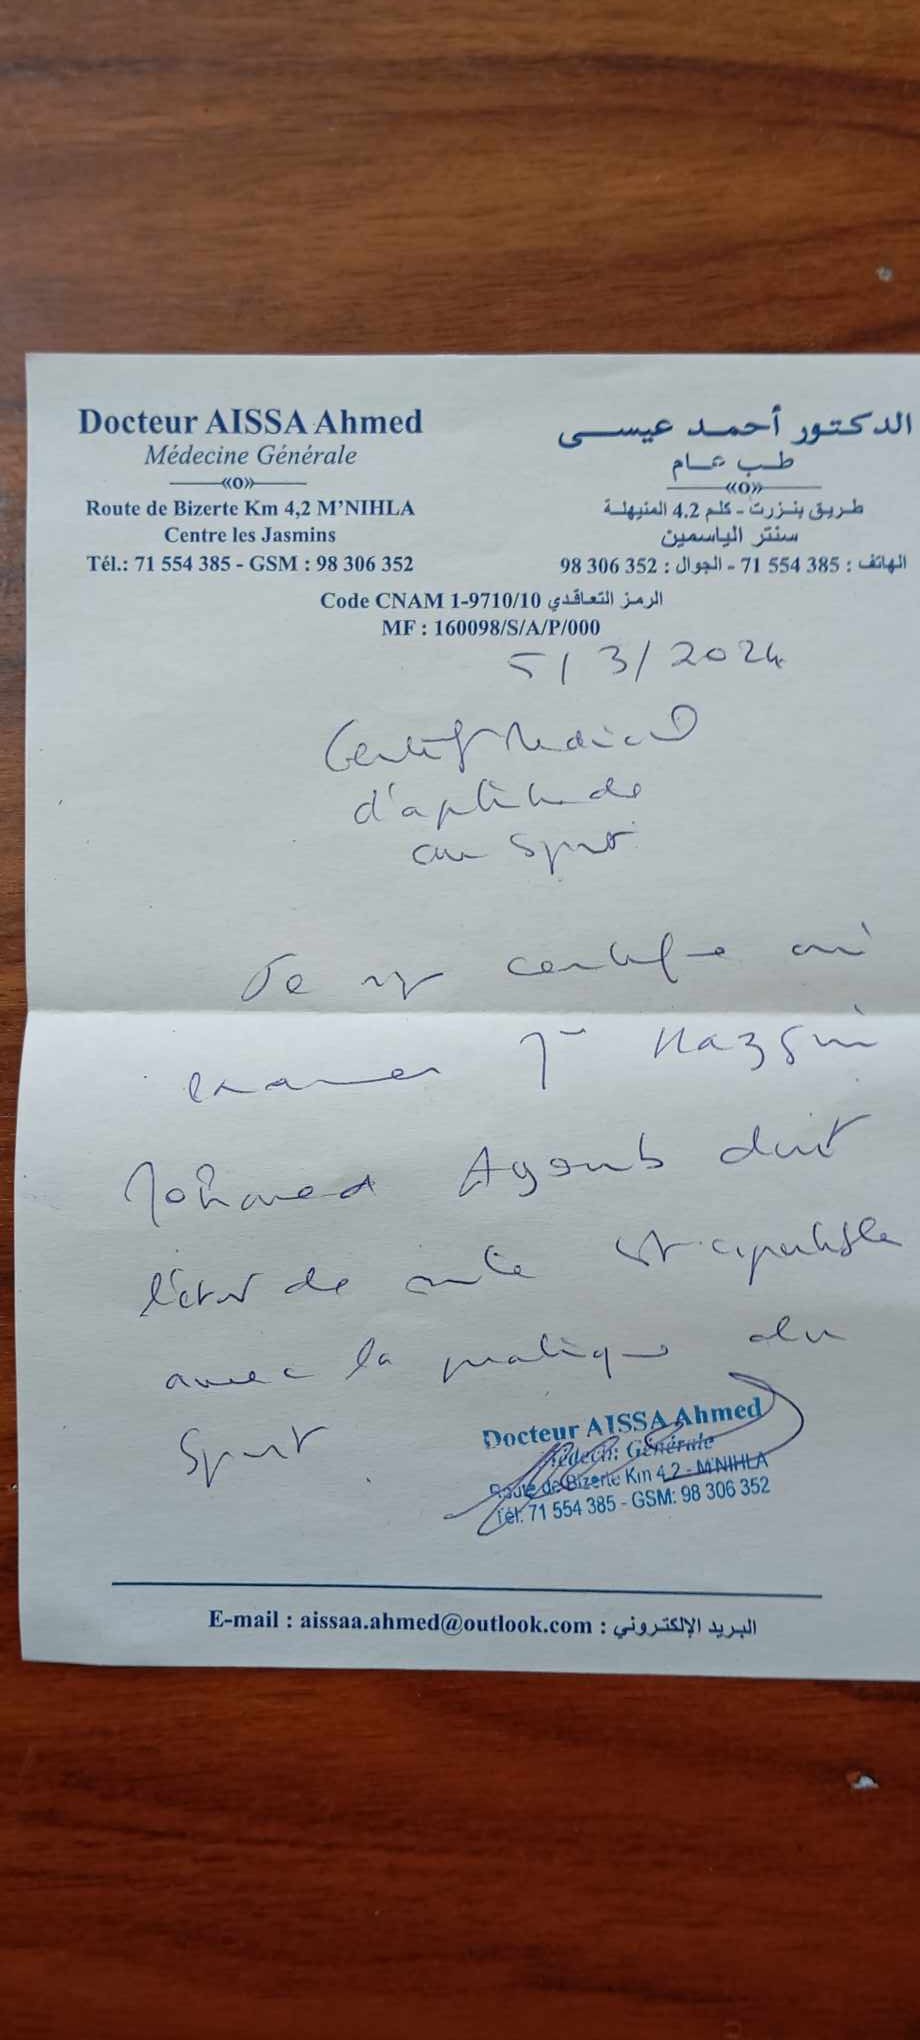 Docteur AISSA Ahmed
Médecine Générale
«o»
Route de Bizerte Km 4,2 M'NIHLA
Centre les Jasmins
Tél.: 71 554 385 - GSM : 98 306 352
الدكتور أحمد عيسى
طب عام
«o»
طريق بنزرت - كلم 4.2 المنيهلة
سنتر الياسمين
الهاتف : 385 554 71 - الجوال : 352 306 98
Code CNAM 1-9710/10 الرمز التعاقدي
MF : 160098/S/A/P/000
5/3/2024
Certif Medical
d'aptitude
au Sport
Je certifie
Mohamed Ayoub dont
l'état de
avec la pratique du
Sport
Docteur AISSA Ahmed
Médecine Générale
Route de Bizerte Km 4,2 - M'NIHLA
Tél: 71 554 385 - GSM: 98 306 352
E-mail : aissaa.ahmed@outlook.com : البريد الإلكتروني